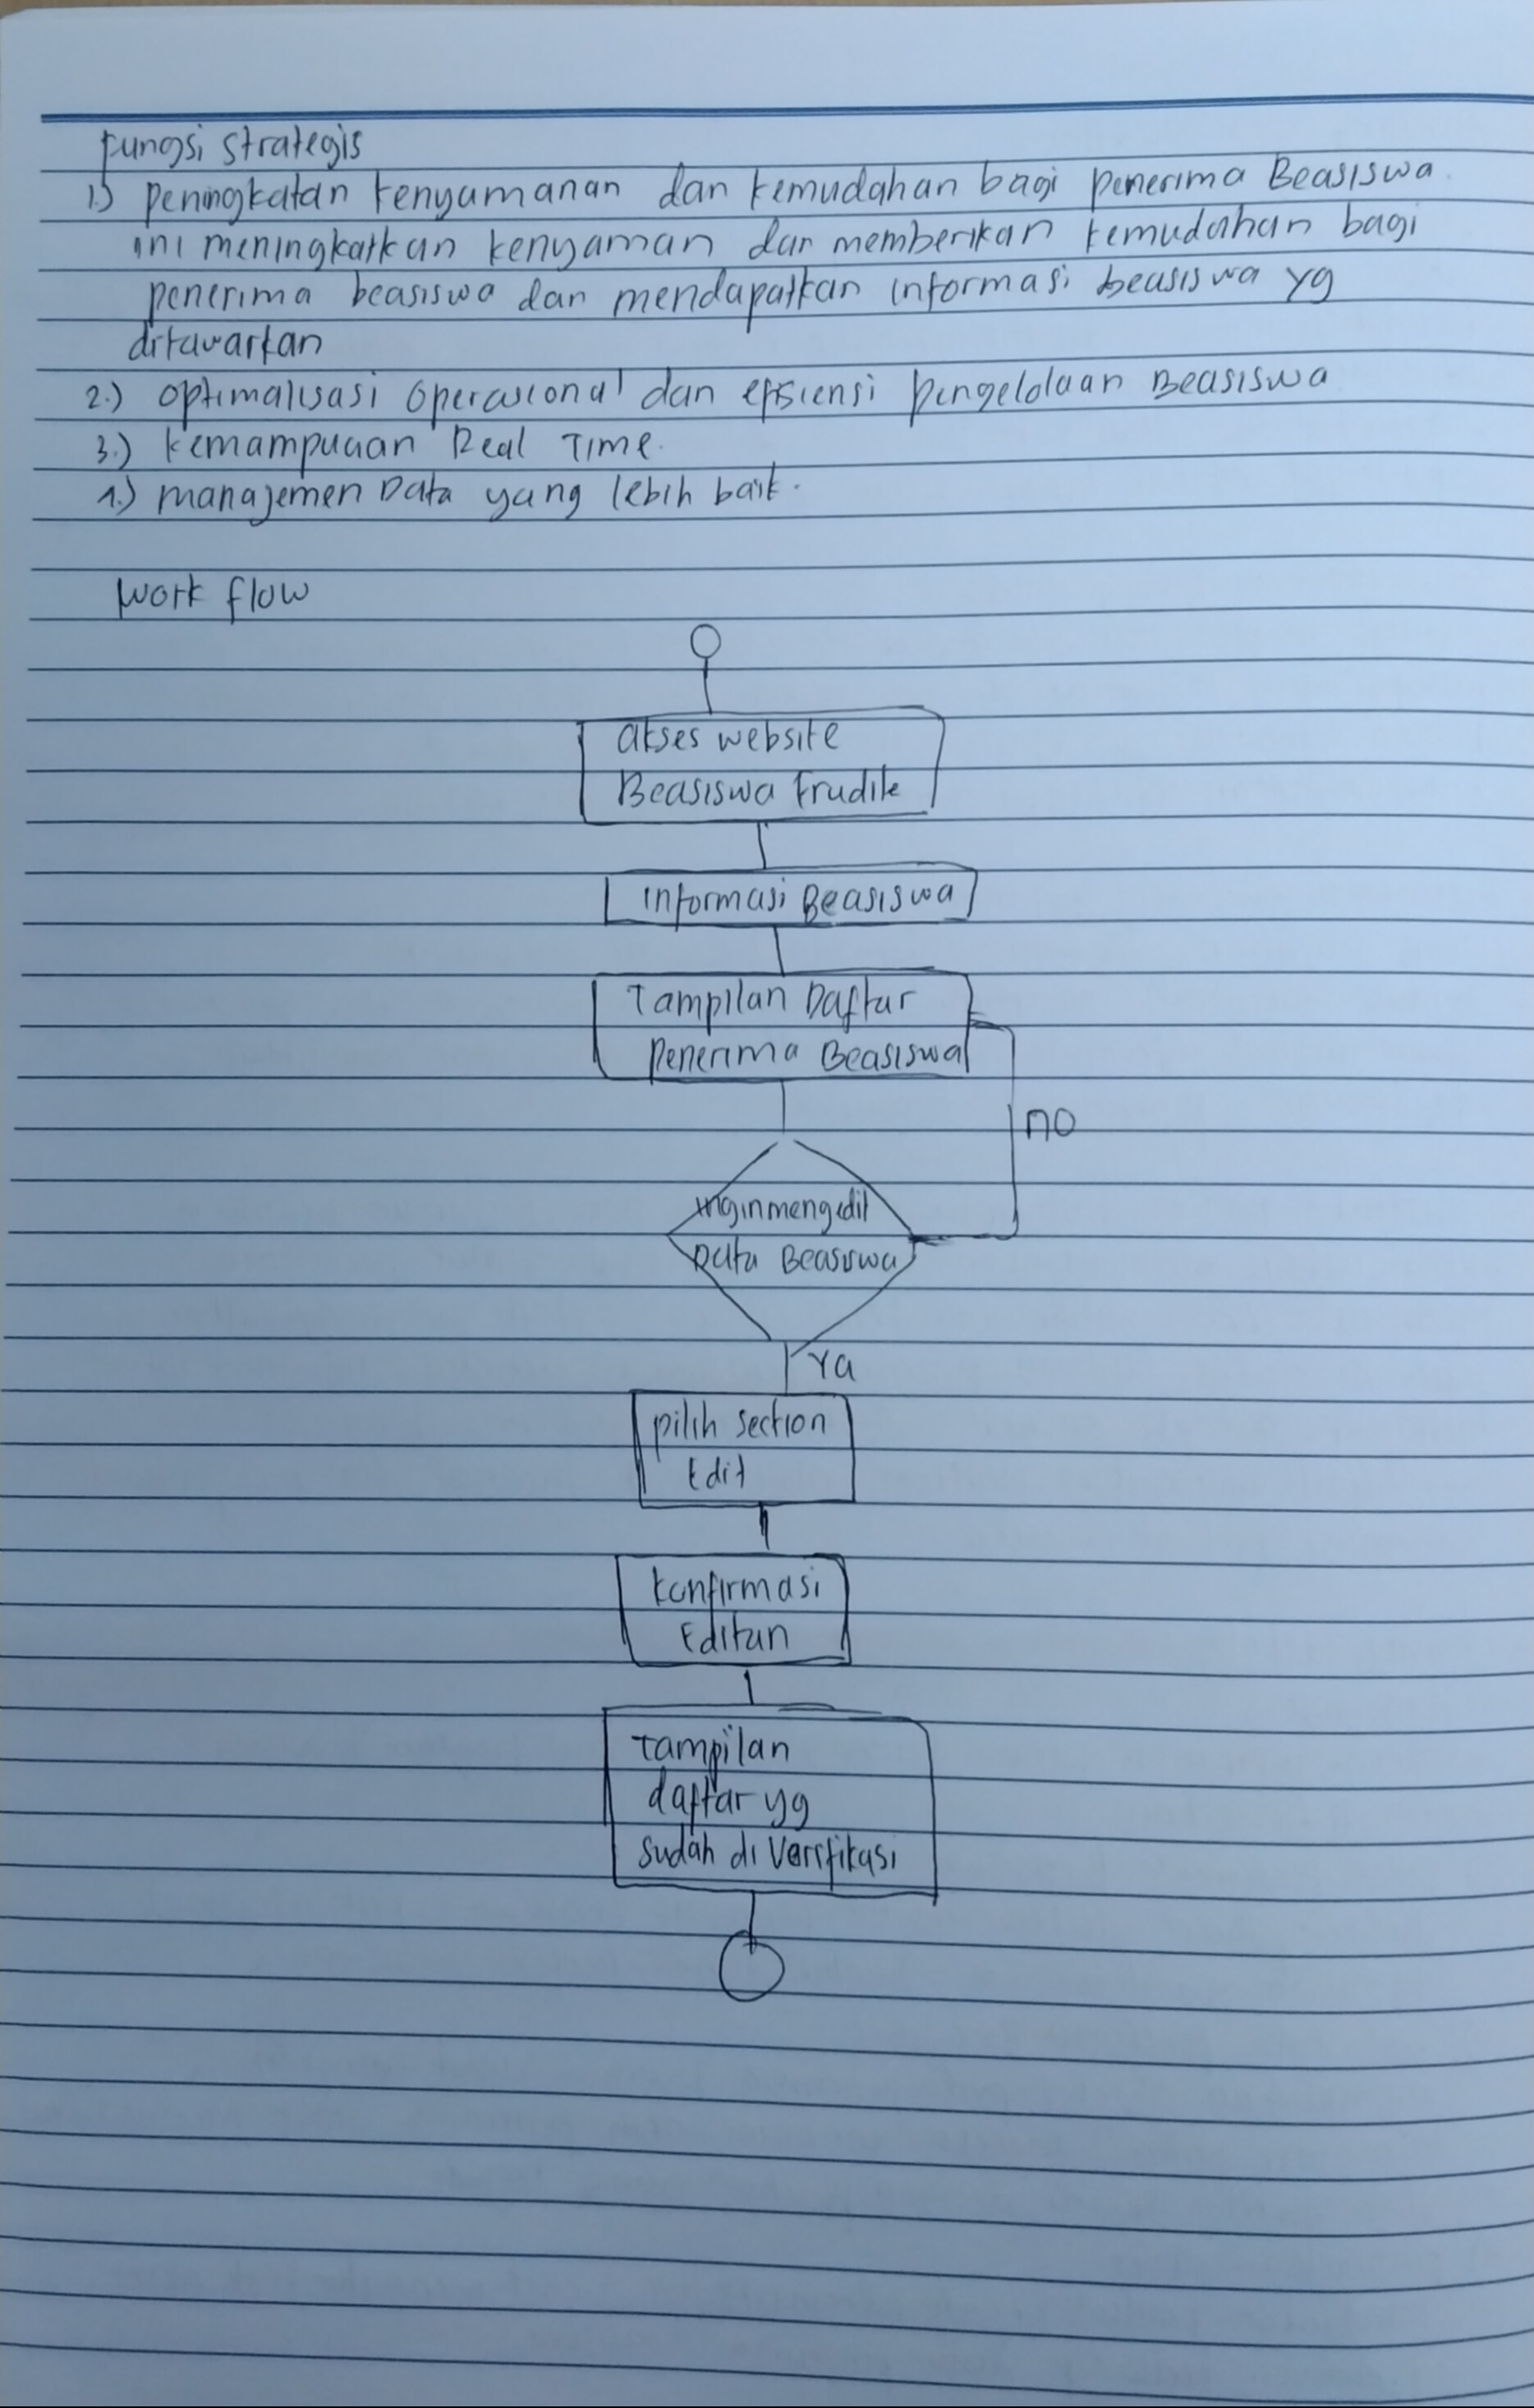 Fungsi strategis
1.) peningkatan kenyamanan dan kemudahan bagi penerima Beasiswa.
ini meningkatkan kenyaman dan memberikan kemudahan bagi
penerima beasiswa dan mendapatkan informasi beasiswa yg
ditawarkan
2.) optimalisasi operasional dan efisiensi pengelolaan Beasiswa
3.) kemampuaan Real Time.
4.) manajemen Data yang lebih baik.
work flow
akses website
Beasiswa Erudite
informasi Beasiswa
Tampilan Daftar
penerima Beasiswa
no
ingin mengedit
Data Beasiswa
Ya
pilih section
Edit
konfirmasi
Editan
tampilan
daftar yg
sudah di Verifikasi